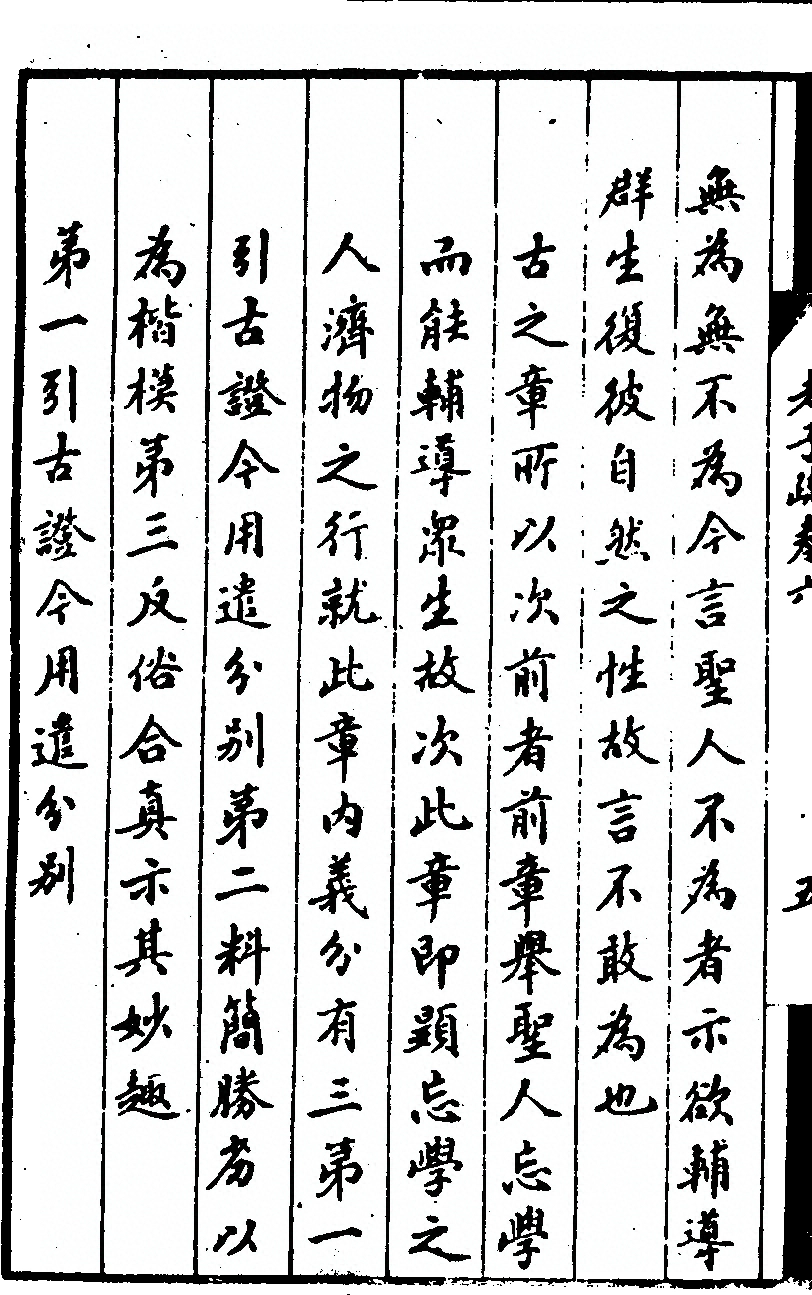 老子疏卷六
五
無為無不為今言聖人不為者示欲輔導
群生復彼自然之性故言不敢為也
古之章所以次前者前章舉聖人忘學
而能輔導眾生故次此章即顯忘學之
人濟物之行就此章內義分有三第一
引古證今用遣分別第二料簡勝劣以
為楷模第三反俗合真示其妙趣
第一引古證今用遣分別